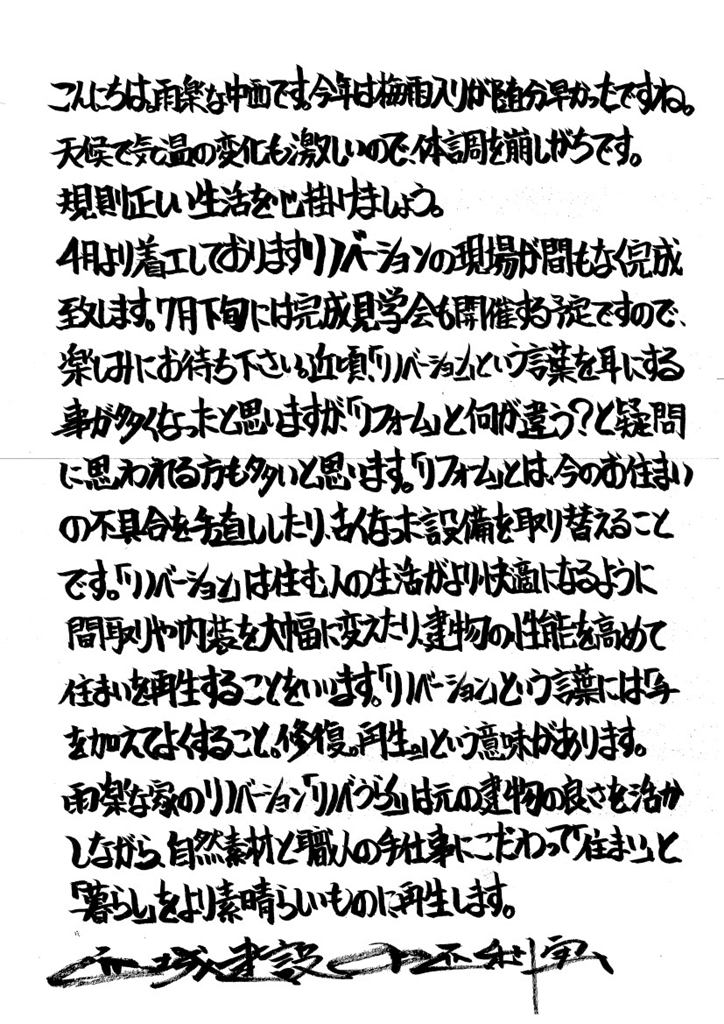 こんにちは。雨楽な中西です。今年は梅雨入りが随分早かったですね。
天候で気温の変化も激しいので、体調を崩しがちです。
規則正しい生活を心掛けましょう。
4月より着工しておりますリノベーションの現場が間もなく完成
致します。7月下旬には完成見学会も開催する予定ですので、
楽しみにお待ち下さい。近頃、「リノベーション」という言葉を耳にする
事が多くなったと思いますが、「リフォーム」と何が違う?と疑問
に思われる方も多いと思います。「リフォーム」とは、今のお住まい
の不具合を手直ししたり、古くなった設備を取り替えること
です。「リノベーション」は住む人の生活がより快適になるように
間取りや内装を大幅に変えたり、建物の性能を高めて
住まいを再生することをいいます。「リノベーション」という言葉には「手
を加えてよくすること。修復。再生。」という意味があります。
雨楽な家のリノベーション「リノベうらく」は元の建物の良さを活か
しながら、自然素材と職人の手仕事にこだわって「住まい」と
「暮らし」をより素晴らしいものに再生します。
城建設 中西